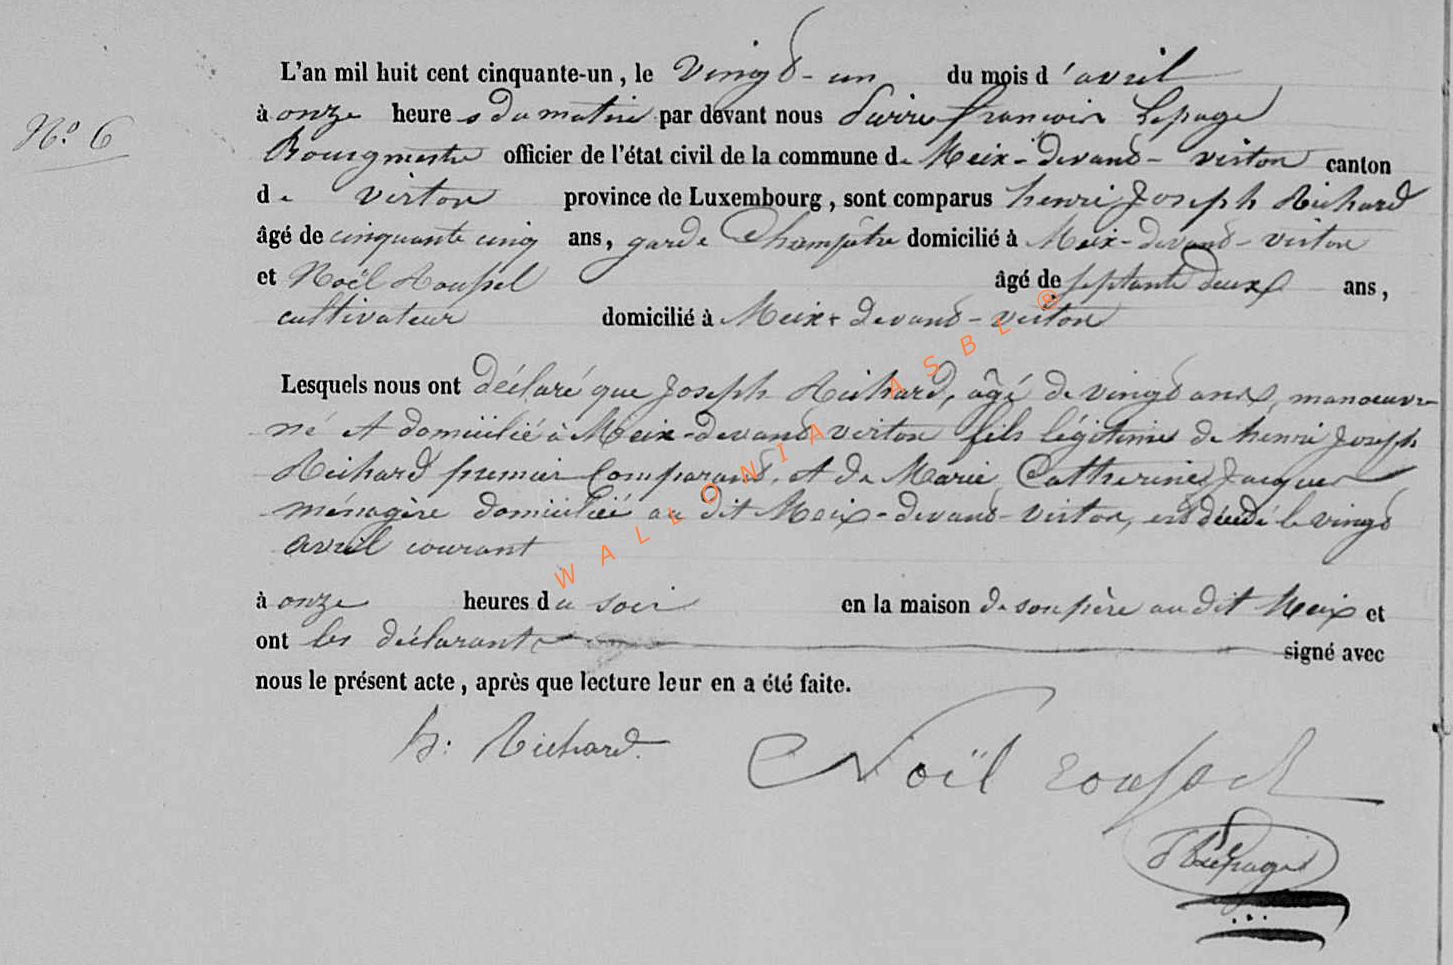 L'an mil huit cent cinquante-un, le vingt-un du mois d'avril
N.o 6
à onze heures du matin par devant nous Pierre françois Lepage
Bourgmestre officier de l'état civil de la commune de Meix-devant-virton canton
de virton province de Luxembourg, sont comparus henri Joseph Richard
âgé de cinquante cinq ans, garde Champêtre domicilié à Meix-devant-virton
et Noël Roussel âgé de septante deux ans,
cultivateur domicilié à Meix-devant-virton
Lesquels nous ont déclaré que Joseph Richard, âgé de vingt ans, manoeuvre
né et domicilié à Meix-devant virton fils légitime de henri Joseph
Richard premier Comparant, et de Marie Catherine Jacques
ménagère domiciliée au dit Meix-devant-virton, est décédé le vingt
avril courant
à onze heures du soir en la maison de son père au dit Meix et
ont les déclarants signé avec
nous le présent acte, après que lecture leur en a été faite.
h: Richard.
Noël roussel
Lepage
WALLONIA ASBL ®